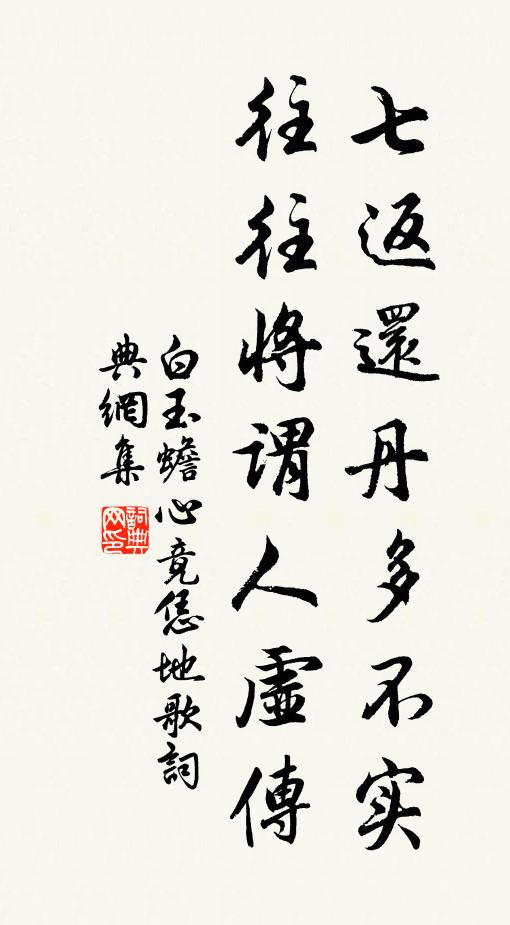 七返還丹多不实
往往將謂人虛傳
白玉蟾心竟恁地歌詞
典網集
詞典网印